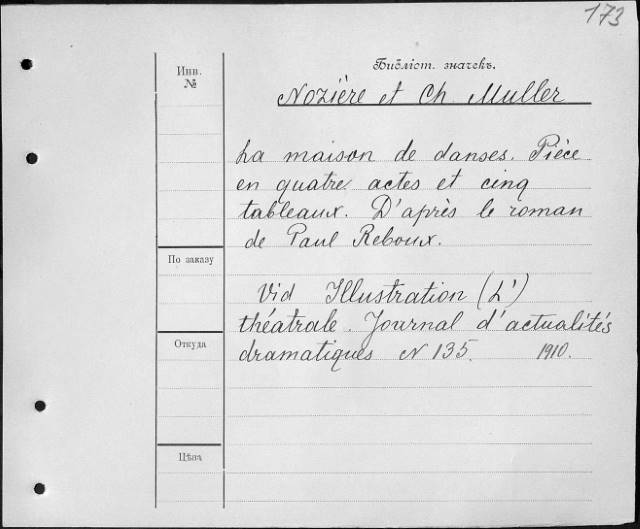 173
Инв.
№
Библіот. значекъ.
Nozière et Ch. Muller
La maison de danses. Pièce
en quatre actes et cinq
tableaux. D'après le roman
de Paul Reboux.
По заказу
Vid Illustration (L')
théatrale. Journal d'actualités
Откуда
dramatiques N 135. 1910.
Цѣна